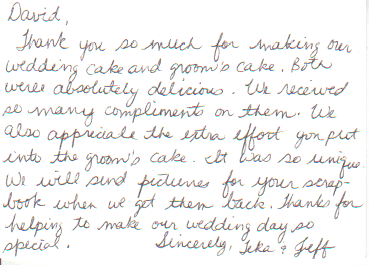 David,
Thank you so much for making our
wedding cake and groom's cake. Both
were absolutely delicious. We received
so many compliments on them. We
also appreciate the extra effort you put
into the groom's cake. It was so unique.
We will send pictures for your scrap-
book when we get them back. Thanks for
helping to make our wedding day so
special. Sincerely, Teka & Jeff